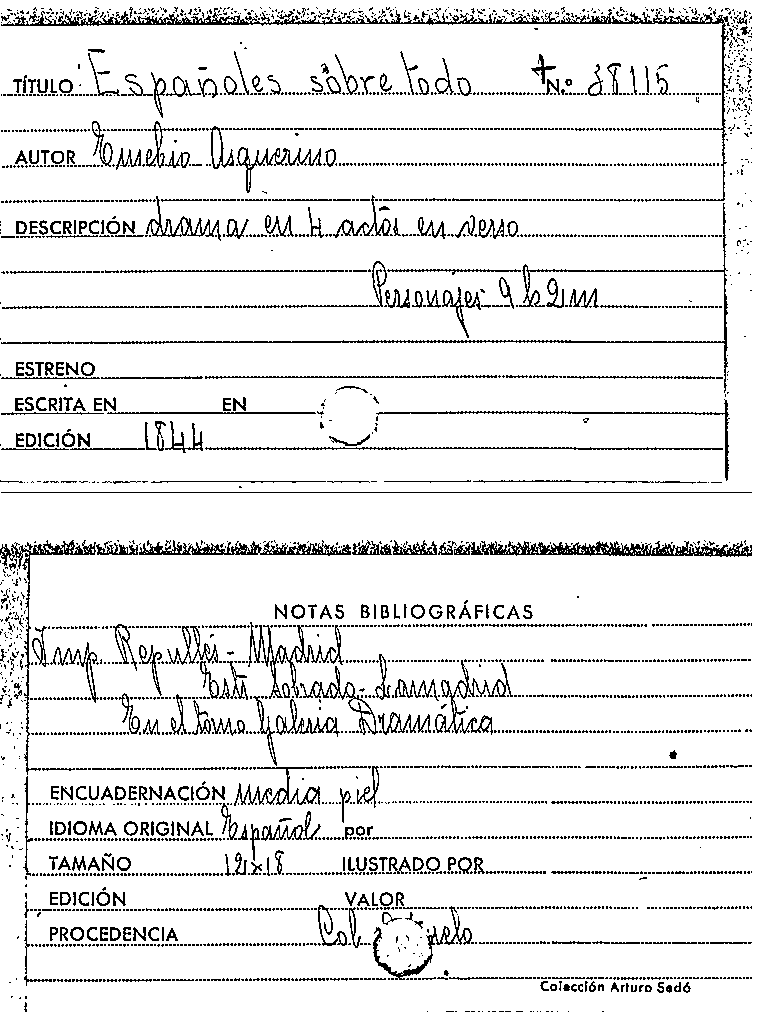 TÍTULO Españoles sobre todo +N.º 38115
AUTOR Eusebio Asquerino
DESCRIPCIÓN drama en 4 actos en verso
Personajes 9 h 2 m
ESTRENO
ESCRITA EN EN
EDICIÓN 1844
NOTAS BIBLIOGRÁFICAS
Imp Repullés - Madrid
Lamadrid
En el tomo Galeria Dramática
ENCUADERNACIÓN media piel
IDIOMA ORIGINAL Español por
TAMAÑO 12x18 ILUSTRADO POR
EDICIÓN VALOR
PROCEDENCIA
Colección Arturo Sedó